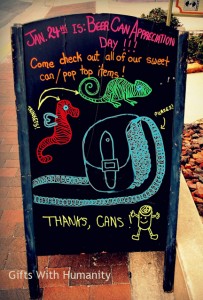 JAN. 24TH IS: BEER CAN APPRECIATION
DAY!!!
Come check out all of our sweet
can / pop top items!
PURSES!
THANKS, CANS!
Gifts With Humanity